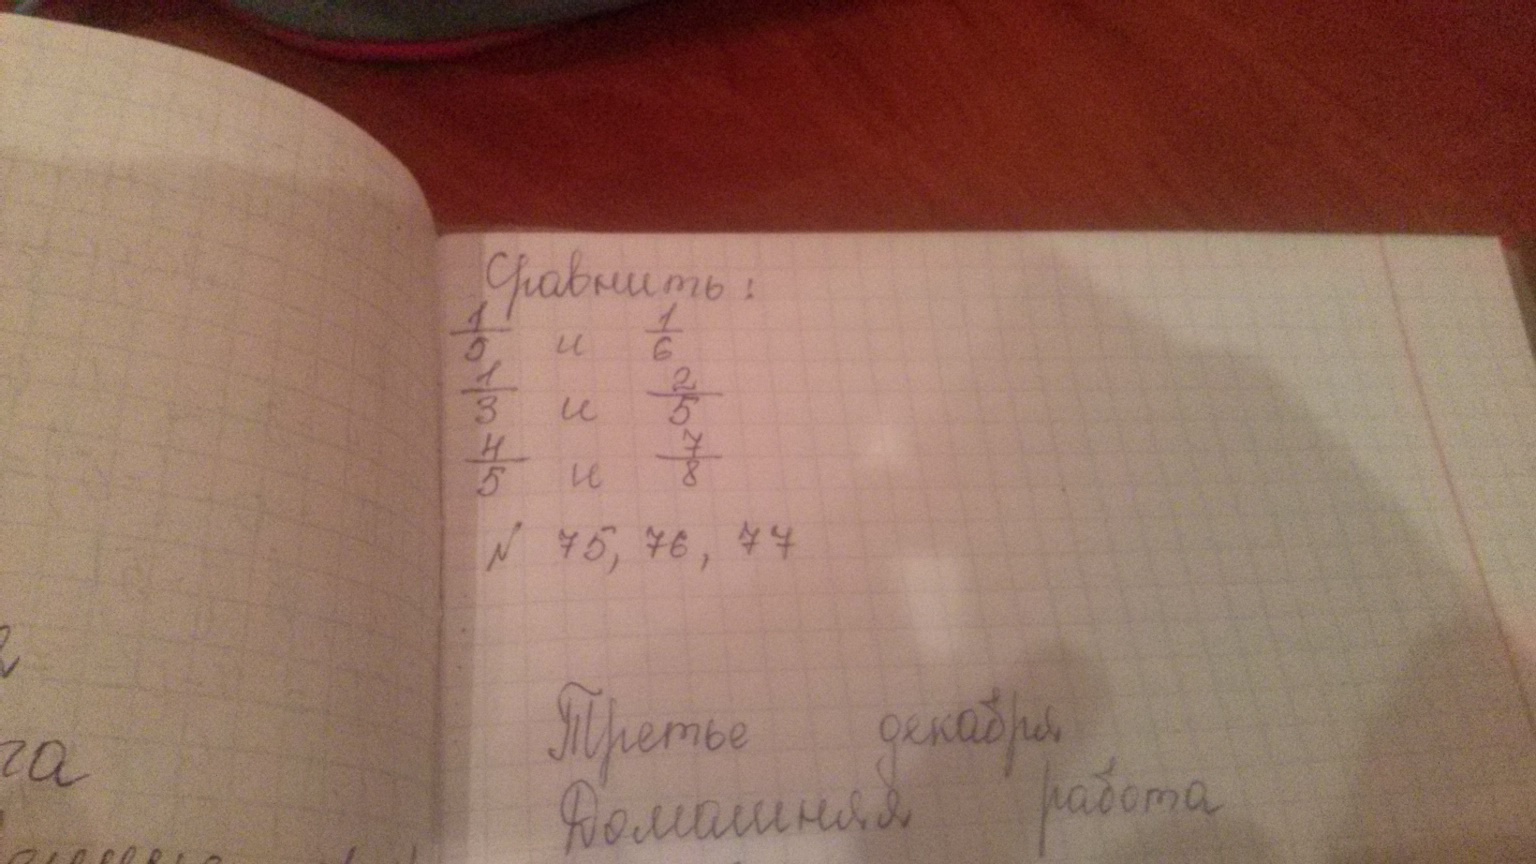 Сравнить:
1/5 и 1/6
1/3 и 2/5
4/5 и 7/8
N 75, 76, 77
Третье декабря
Домашняя работа
та